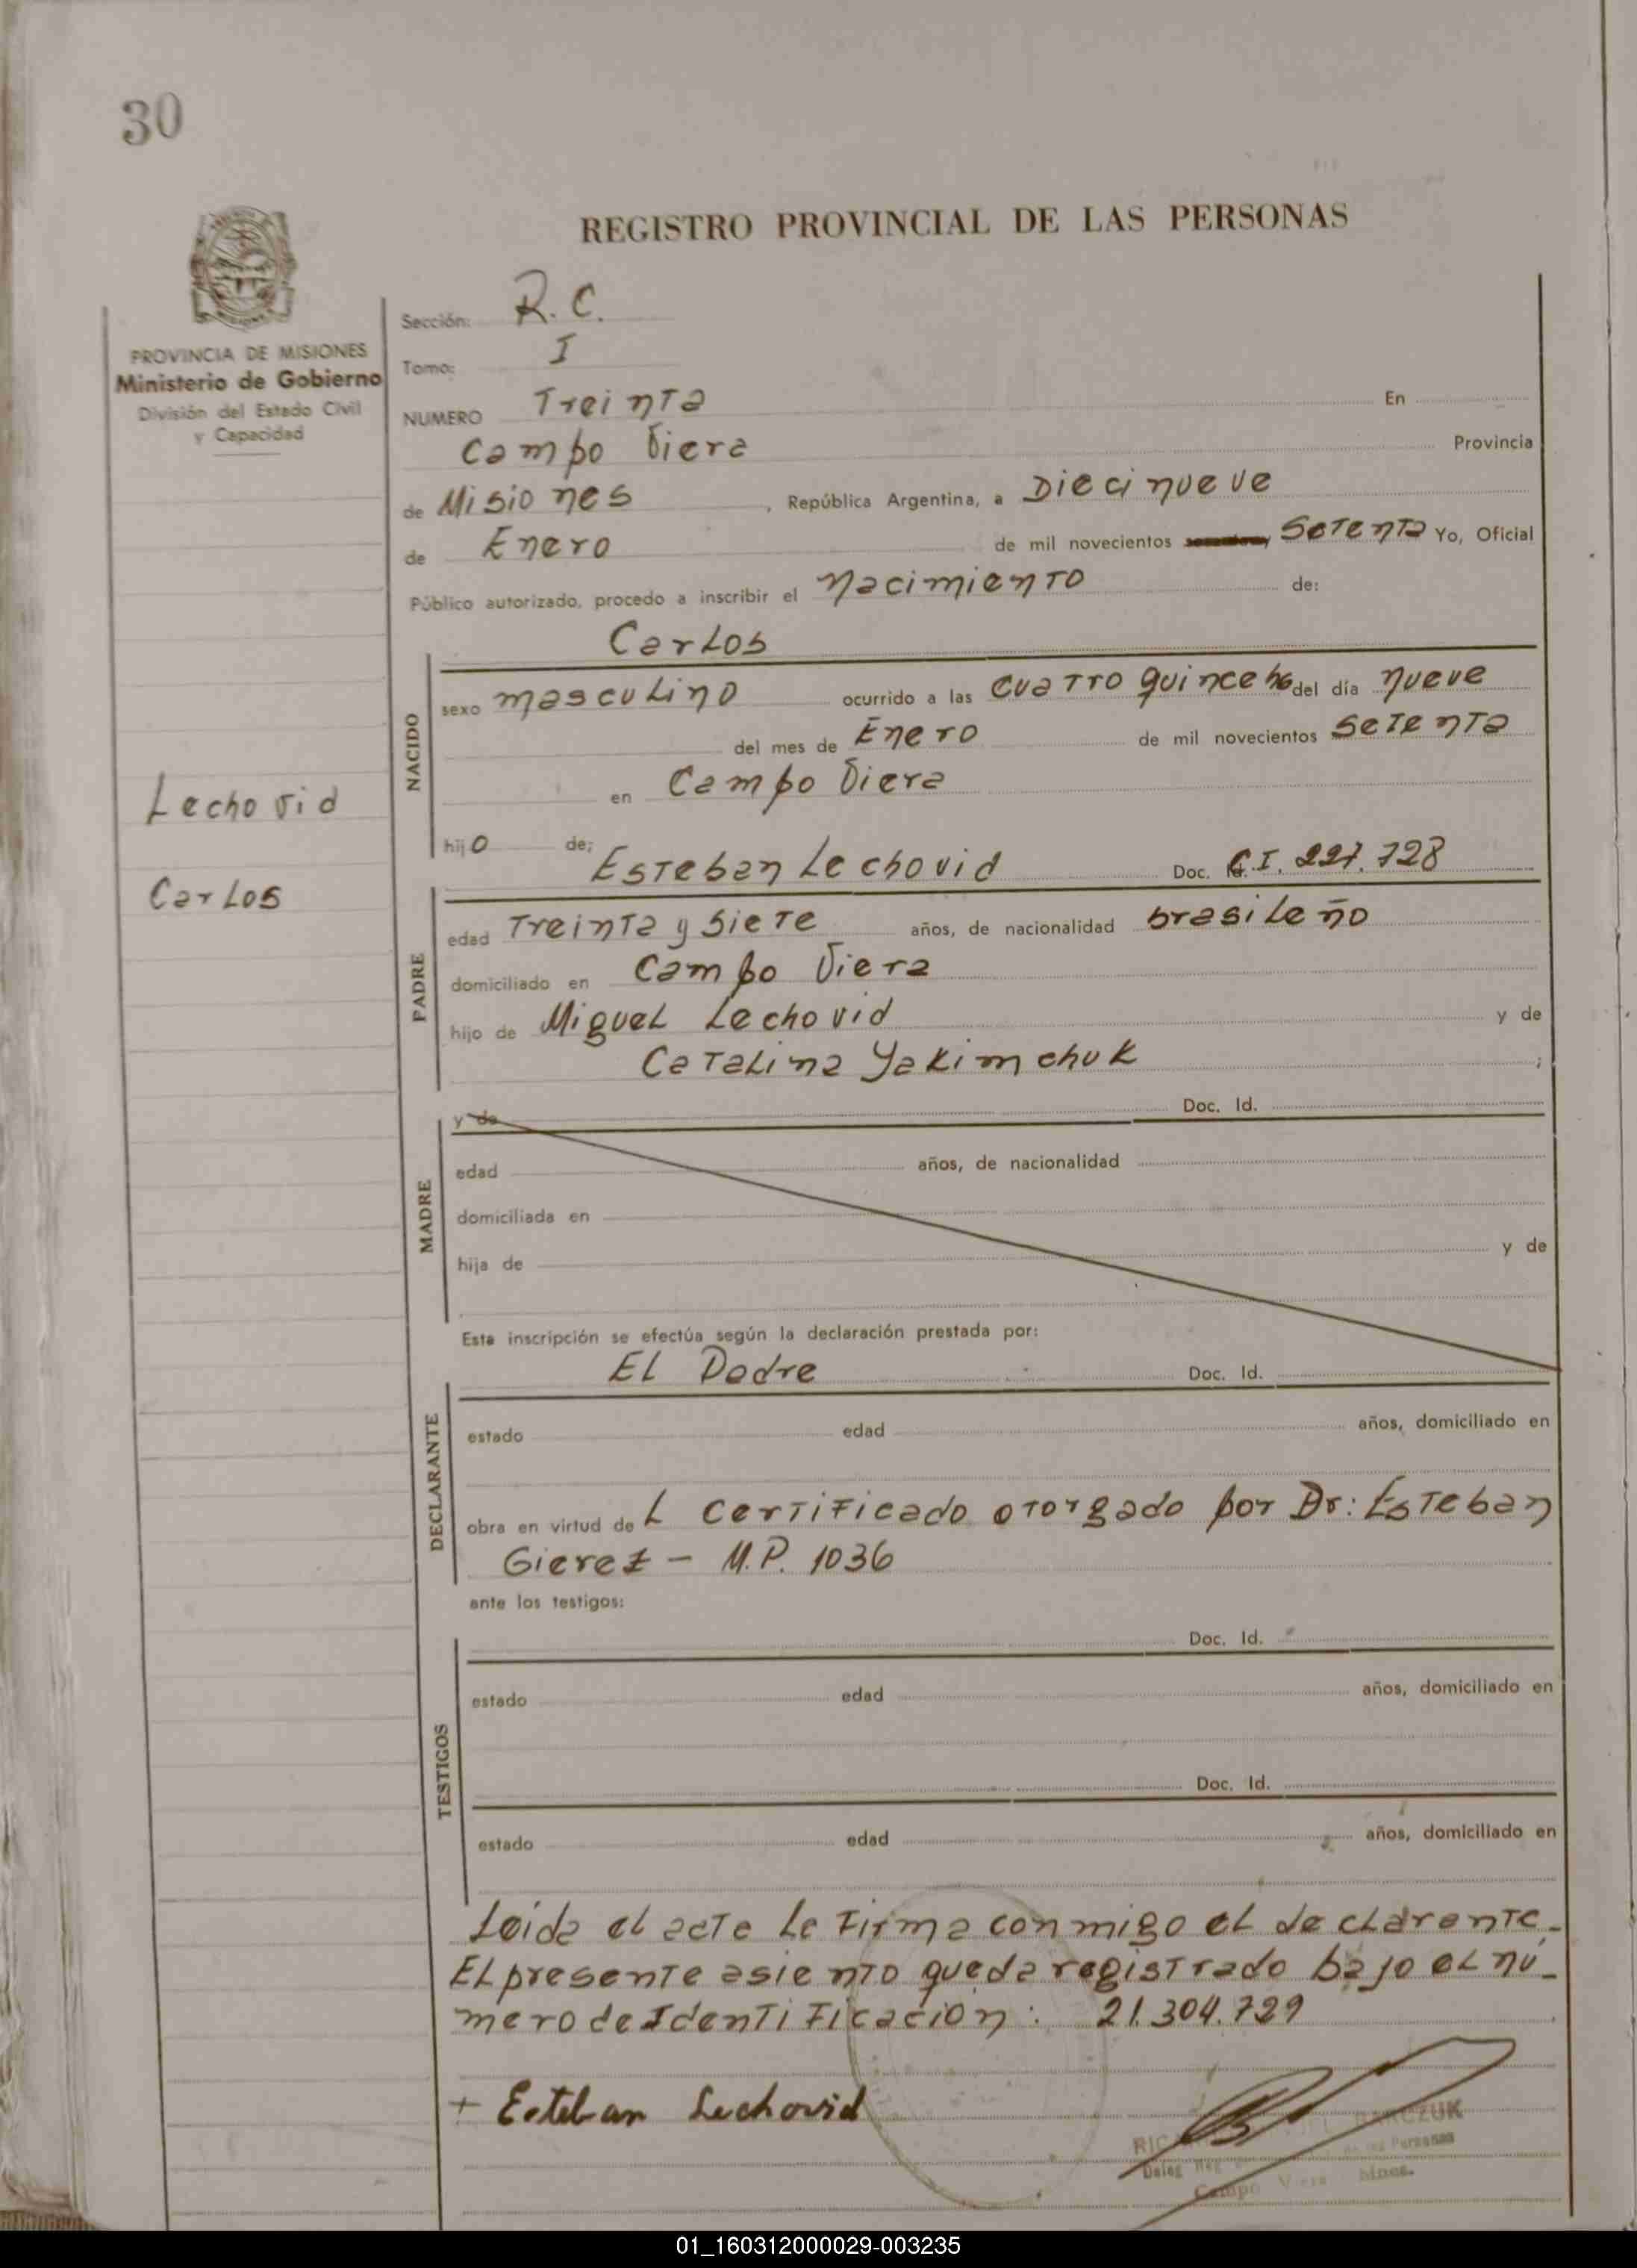 30
REGISTRO PROVINCIAL DE LAS PERSONAS
PROVINCIA DE MISIONES
Ministerio de Gobierno
División del Estado Civil
y Capacidad
Sección: R. C.
Tomo: I
NUMERO Treinta En
Campo Viera Provincia
de Misiones, República Argentina, a Diecinueve
de Enero de mil novecientos Setenta Yo, Oficial
Público autorizado, procedo a inscribir el Nacimiento de:
Carlos
NACIDO
sexo masculino ocurrido a las cuatro quince hs del día nueve
del mes de Enero de mil novecientos Setenta
en Campo Viera
Lechovid
Carlos
hijo de; Esteban Lechovid Doc. C.I. 227.728
PADRE
edad Treinta y siete años, de nacionalidad brasileño
domiciliado en Campo Viera
hijo de Miguel Lechovid y de
Catalina Yakimchuk ;
MADRE
y de Doc. Id.
edad años, de nacionalidad
domiciliada en
hija de y de
Esta inscripción se efectúa según la declaración prestada por:
El Padre Doc. Id.
DECLARANTE
estado edad años, domiciliado en
obra en virtud del certificado otorgado por Dr: Esteban
Gierez - M.P. 1036
ante los testigos:
Doc. Id.
TESTIGOS
estado edad años, domiciliado en
Doc. Id.
estado edad años, domiciliado en
Leida el acta la firma conmigo el declarante.
El presente asiento queda registrado bajo el nú-
mero de Identificación: 21.304.729
+ Esteban Lechovid
BARCZUK
Deleg Reg de las Personas
Campo Viera Mnes.
01_160312000029-003235